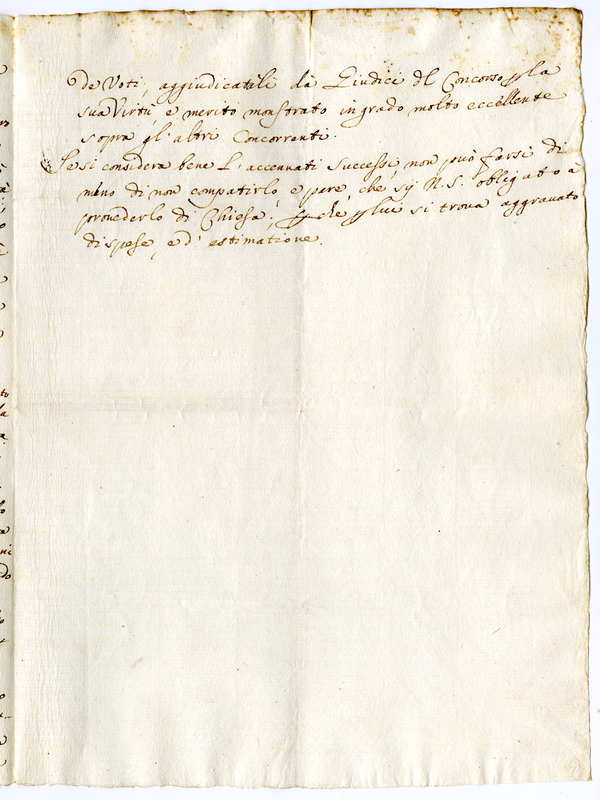 de Voti, aggiudicatili dà Giudici del Concorso p la
sua Virtù, e merito monstrato in grado molto eccellente
sopra gl'altri Concorrenti.
Se si considera bene l'accennati successi, non può farsi di
meno di non compatirlo, e pare, che sij N. S. obligato à
provederlo di Chiesa, p che p lui si trova aggravato
di spese, e d'estimatione.